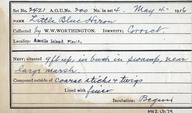 Set No. 2421 A.O.U. No. 200 No. in set 4. May 4. 1916
Name Little Blue Heron
Collected by W. W. WORTHINGTON. Identity: Correct
Locality: Amelia Island Florida.
Nest; situated 4 ft up in bush in swamp, near large marsh
Composed outside of coarse sticks & twigs
Lined with finer
Incubation: Begun